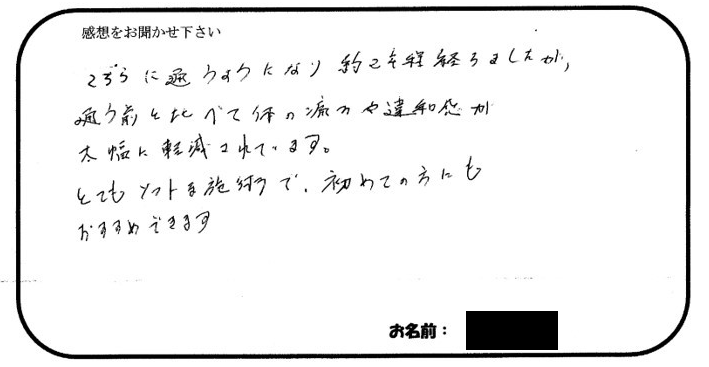 感想をお聞かせ下さい
こちらに通うようになり約2年程経ちましたが、
通う前と比べて体の痛みや違和感が
大幅に軽減されています。
とてもソフトな施術で、初めての方にも
おすすめできます
お名前：